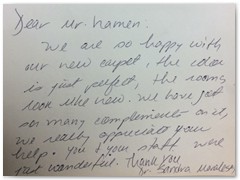 Dear Mr. Hamen.
We are so happy with
our new carpet, the color
is just perfect, the rooms
look like new. We have got
so many complements on it,
we really appreciate your
help. You & your staff were
just wonderful. Thank you
Dr. Sandra